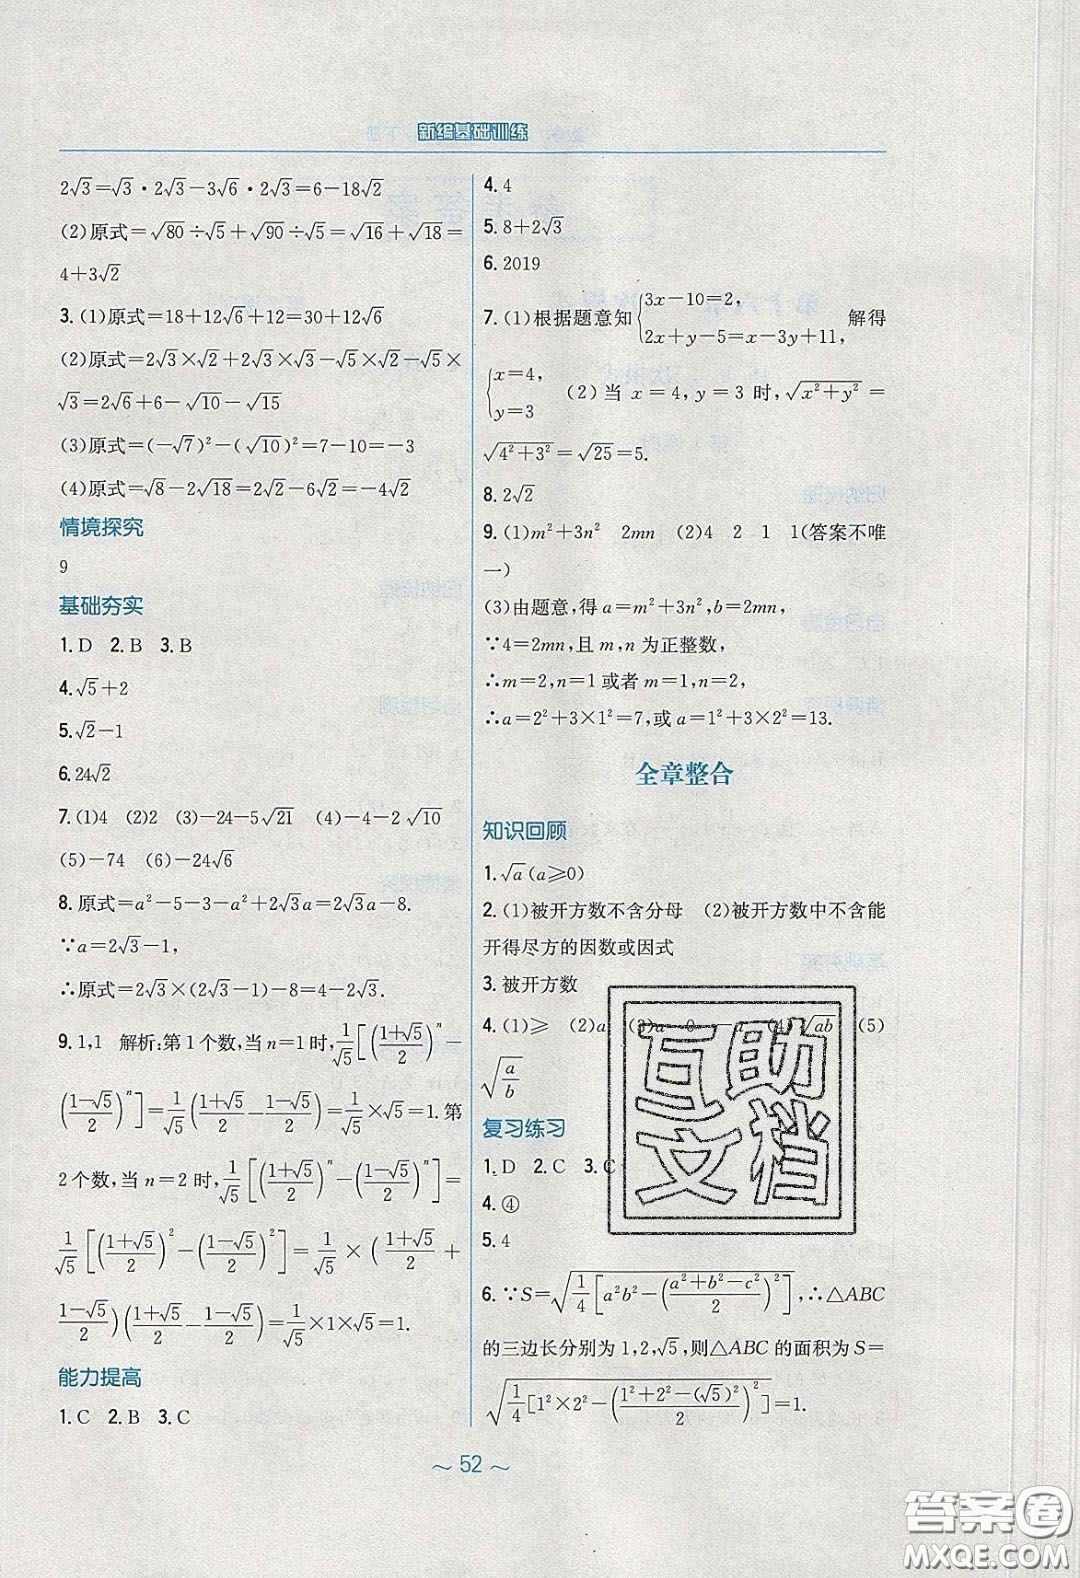 新编基础训练
2√3=√3·2√3-3√6·2√3=6-18√2
(2)原式=√80÷√5+√90÷√5=√16+√18=
4+3√2
3. (1)原式=18+12√6+12=30+12√6
(2)原式=2√3×√2+2√3×√3-√5×√2-√5×
√3=2√6+6-√10-√15
(3)原式=(-√7)²-(√10)²=7-10=-3
(4)原式=√8-2√18=2√2-6√2=-4√2
情境探究
9
基础夯实
1. D 2. B 3. B
4. √5+2
5. √2-1
6. 24√2
7. (1)4 (2)2 (3)-24-5√21 (4)-4-2√10
(5)-74 (6)-24√6
8. 原式=a²-5-3-a²+2√3a=2√3a-8.
∵a=2√3-1,
∴原式=2√3×(2√3-1)-8=4-2√3.
9. 1,1 解析:第1个数,当n=1时,1/√5[((1+√5)/2)ⁿ-
((1-√5)/2)ⁿ]=1/√5((1+√5)/2-(1-√5)/2)=1/√5×√5=1. 第
2个数,当n=2时,1/√5[((1+√5)/2)ⁿ-((1-√5)/2)ⁿ]=
1/√5[((1+√5)/2)²-((1-√5)/2)²]=1/√5×((1+√5)/2+
(1-√5)/2)((1+√5)/2-(1-√5)/2)=1/√5×1×√5=1.
能力提高
1. C 2. B 3. C
4. 4
5. 8+2√3
6. 2019
7. (1)根据题意知{3x-10=2, 2x+y-5=x-3y+11, 解得
{x=4, y=3 (2)当x=4,y=3时,√(x²+y²)=
√(4²+3²)=√25=5.
8. 2√2
9. (1)m²+3n² 2mn (2)4 2 1 1(答案不唯
一)
(3)由题意,得a=m²+3n²,b=2mn,
∵4=2mn,且m,n为正整数,
∴m=2,n=1或者m=1,n=2,
∴a=2²+3×1²=7,或a=1²+3×2²=13.
全章整合
知识回顾
1. √a(a≥0)
2. (1)被开方数不含分母 (2)被开方数中不含能
开得尽方的因数或因式
3. 被开方数
4. (1)≥ (2)a (3)a 0 -a (4)√ab (5)
√(a/b)
复习练习
1. D 2. C 3. C
4. ④
5. 4
6. ∵S=√(1/4[a²b²-((a²+b²-c²)/2)²]),∴△ABC
的三边长分别为1,2,√5,则△ABC的面积为S=
√(1/4[1²×2²-((1²+2²-(√5)²)/2)²])=1.
互助
文档
~52~
答案圈
MXQE.COM